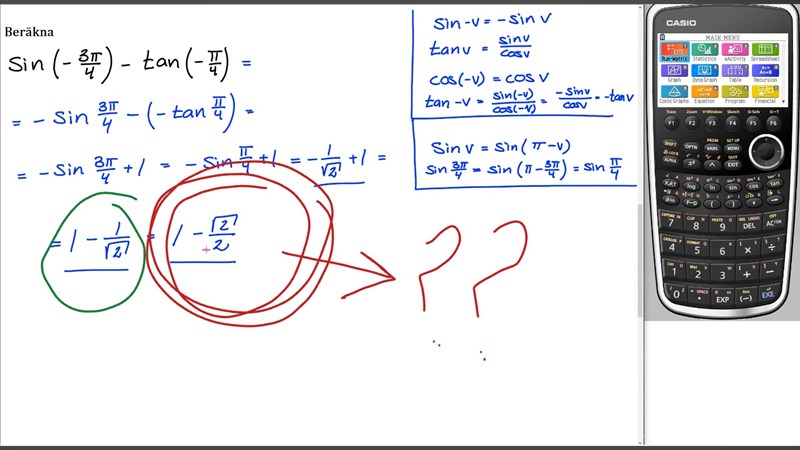 Beräkna
sin(-3π/4) - tan(-π/4) =
= -sin 3π/4 - (-tan π/4) =
= -sin 3π/4 + 1 = -sin π/4 + 1 = -1/√2 + 1 =
= 1 - 1/√2 = 1 - √2/2
??
sin -v = -sin v
tan v = sin v/cos v
cos(-v) = cos v
tan -v = sin(-v)/cos(-v) = -sin v/cos v = -tan v
sin v = sin(π-v)
sin 3π/4 = sin(π - 3π/4) = sin π/4
CASIO
MAIN MENU
Run-Matrix Statistics eActivity Spreadsheet
Graph Dyna Graph Table Recursion
Conic Graphs Equation Program Financial
F1 F2 F3 F4 F5 F6
SHIFT OPTN VARS MENU
ALPHA x² ^ EXIT
X,θ,T log ln sin cos tan
7 8 9 DEL AC/ON
4 5 6 × ÷
1 2 3 + -
0 . EXP (-) EXE